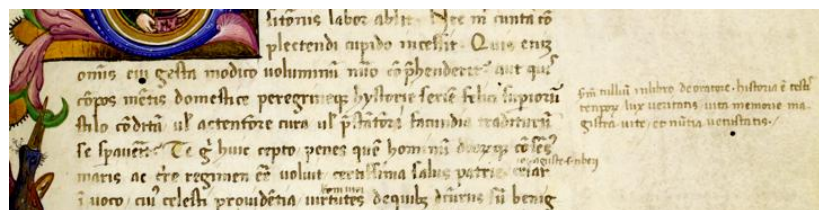 sitoris labor absit. Nec mi cuncta cō
plectendi cupido incessit. Quis enĩ
omĩs eui gesta modico voluminũ nũo cōp̃henderit aut quis
cōpos mẽtis domestice peregrineqꝫ hystorie seriẽ felici supiorũ
stilo cōditã ul̃ actentiore cura ul̃ p̃stãtiori facundia traditurũ
se spauerit. Te g̃ huic cepto penes quẽ hominũ deorũqꝫ cōsẽsꝰ
maris ac t̃re regimen eẽ voluit certissima salus patrie
ĩuoco cuiꝰ celesti prouidẽtia uirtutes de quibꝫ dicturus sũ benig
Sm̃ tulliũ in libro de oratore. historia ẽ testis
temporũ lux veritatis uita memorie ma
gistra uite et nũtia vetustatis.